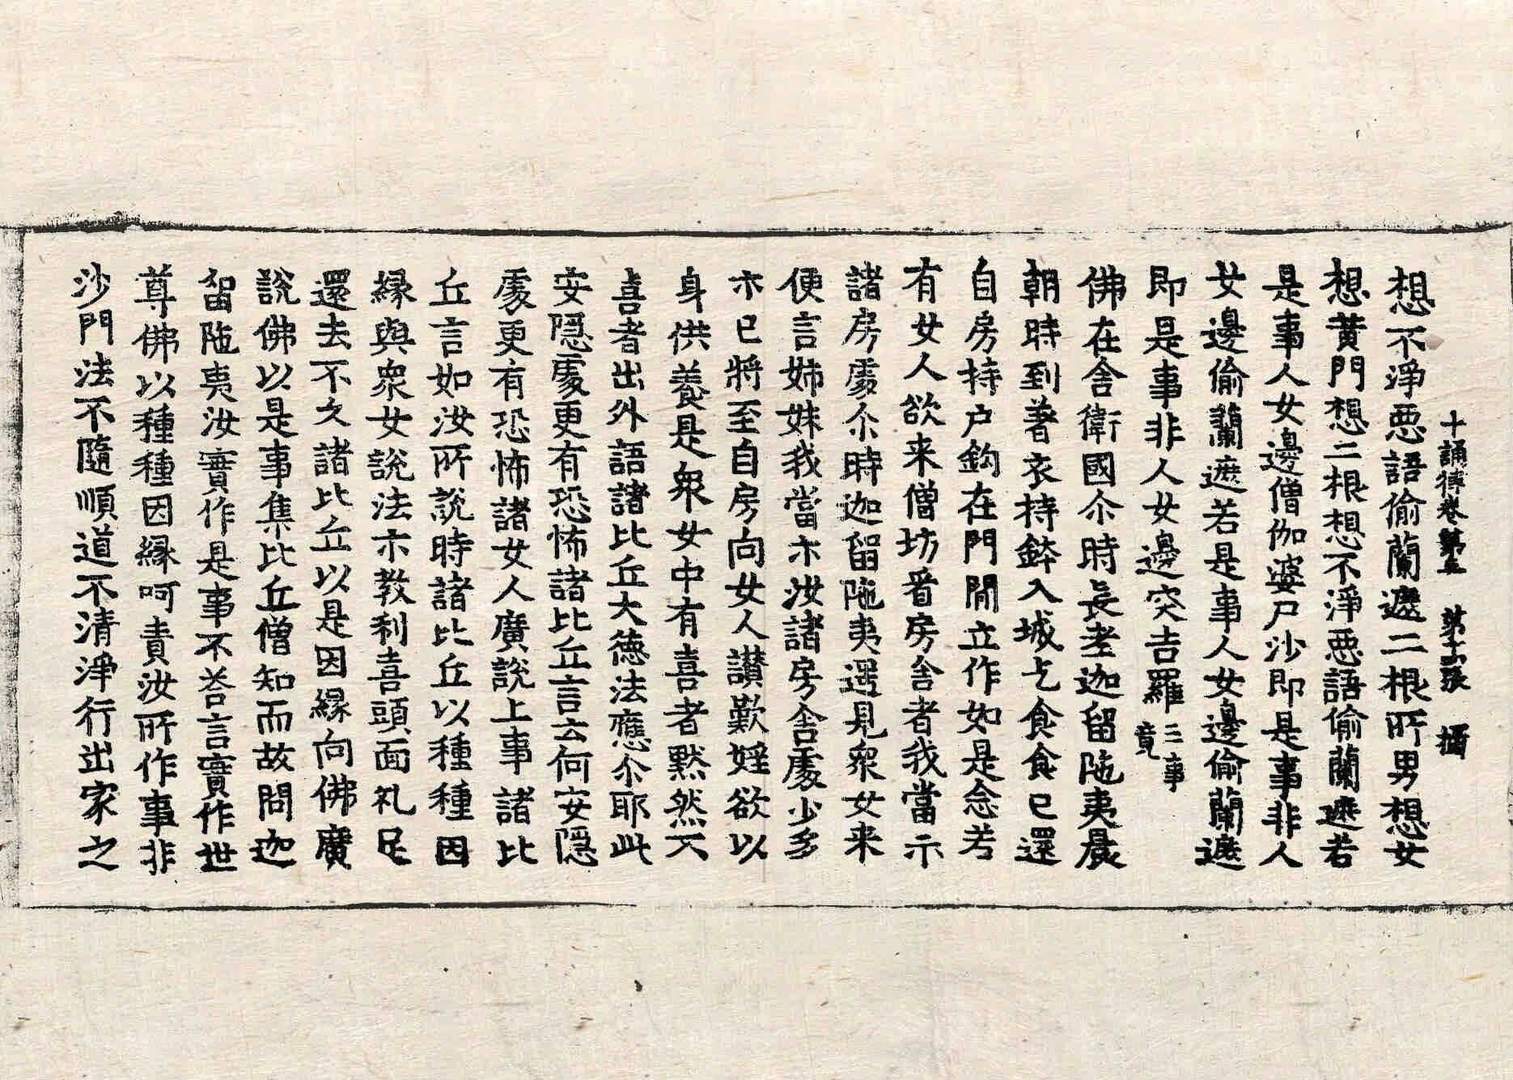 十誦律卷第三 第十六張 攝
想不淨惡語偷蘭遮二根所男想女
想黄門想二根想不淨惡語偷蘭遮若
是事人女邊僧伽婆尸沙即是事非人
女邊偷蘭遮若是事人女邊偷蘭遮
即是事非人女邊突吉羅三事竟
佛在舍衛國尒時長老迦留陁夷晨
朝時到著衣持鉢入城乞食食已還
自房持户鈎在門閒立作如是念若
有女人欲来僧坊看房舍者我當示
諸房處尒時迦留陁夷遥見衆女来
便言姊妹我當示汝諸房舍處少多
示已將至自房向女人讃歎婬欲以
身供養是衆女中有喜者默然不
喜者出外語諸比丘大徳法應尒耶此
安隱處更有恐怖諸比丘言云何安隱
處更有恐怖諸女人廣說上事諸比
丘言如汝所說時諸比丘以種種因
縁與衆女說法示教利喜頭面礼足
還去不久諸比丘以是因縁向佛廣
說佛以是事集比丘僧知而故問迦
留陁夷汝實作是事不荅言實作世
尊佛以種種因縁呵責汝所作事非
沙門法不隨順道不清淨行出家之